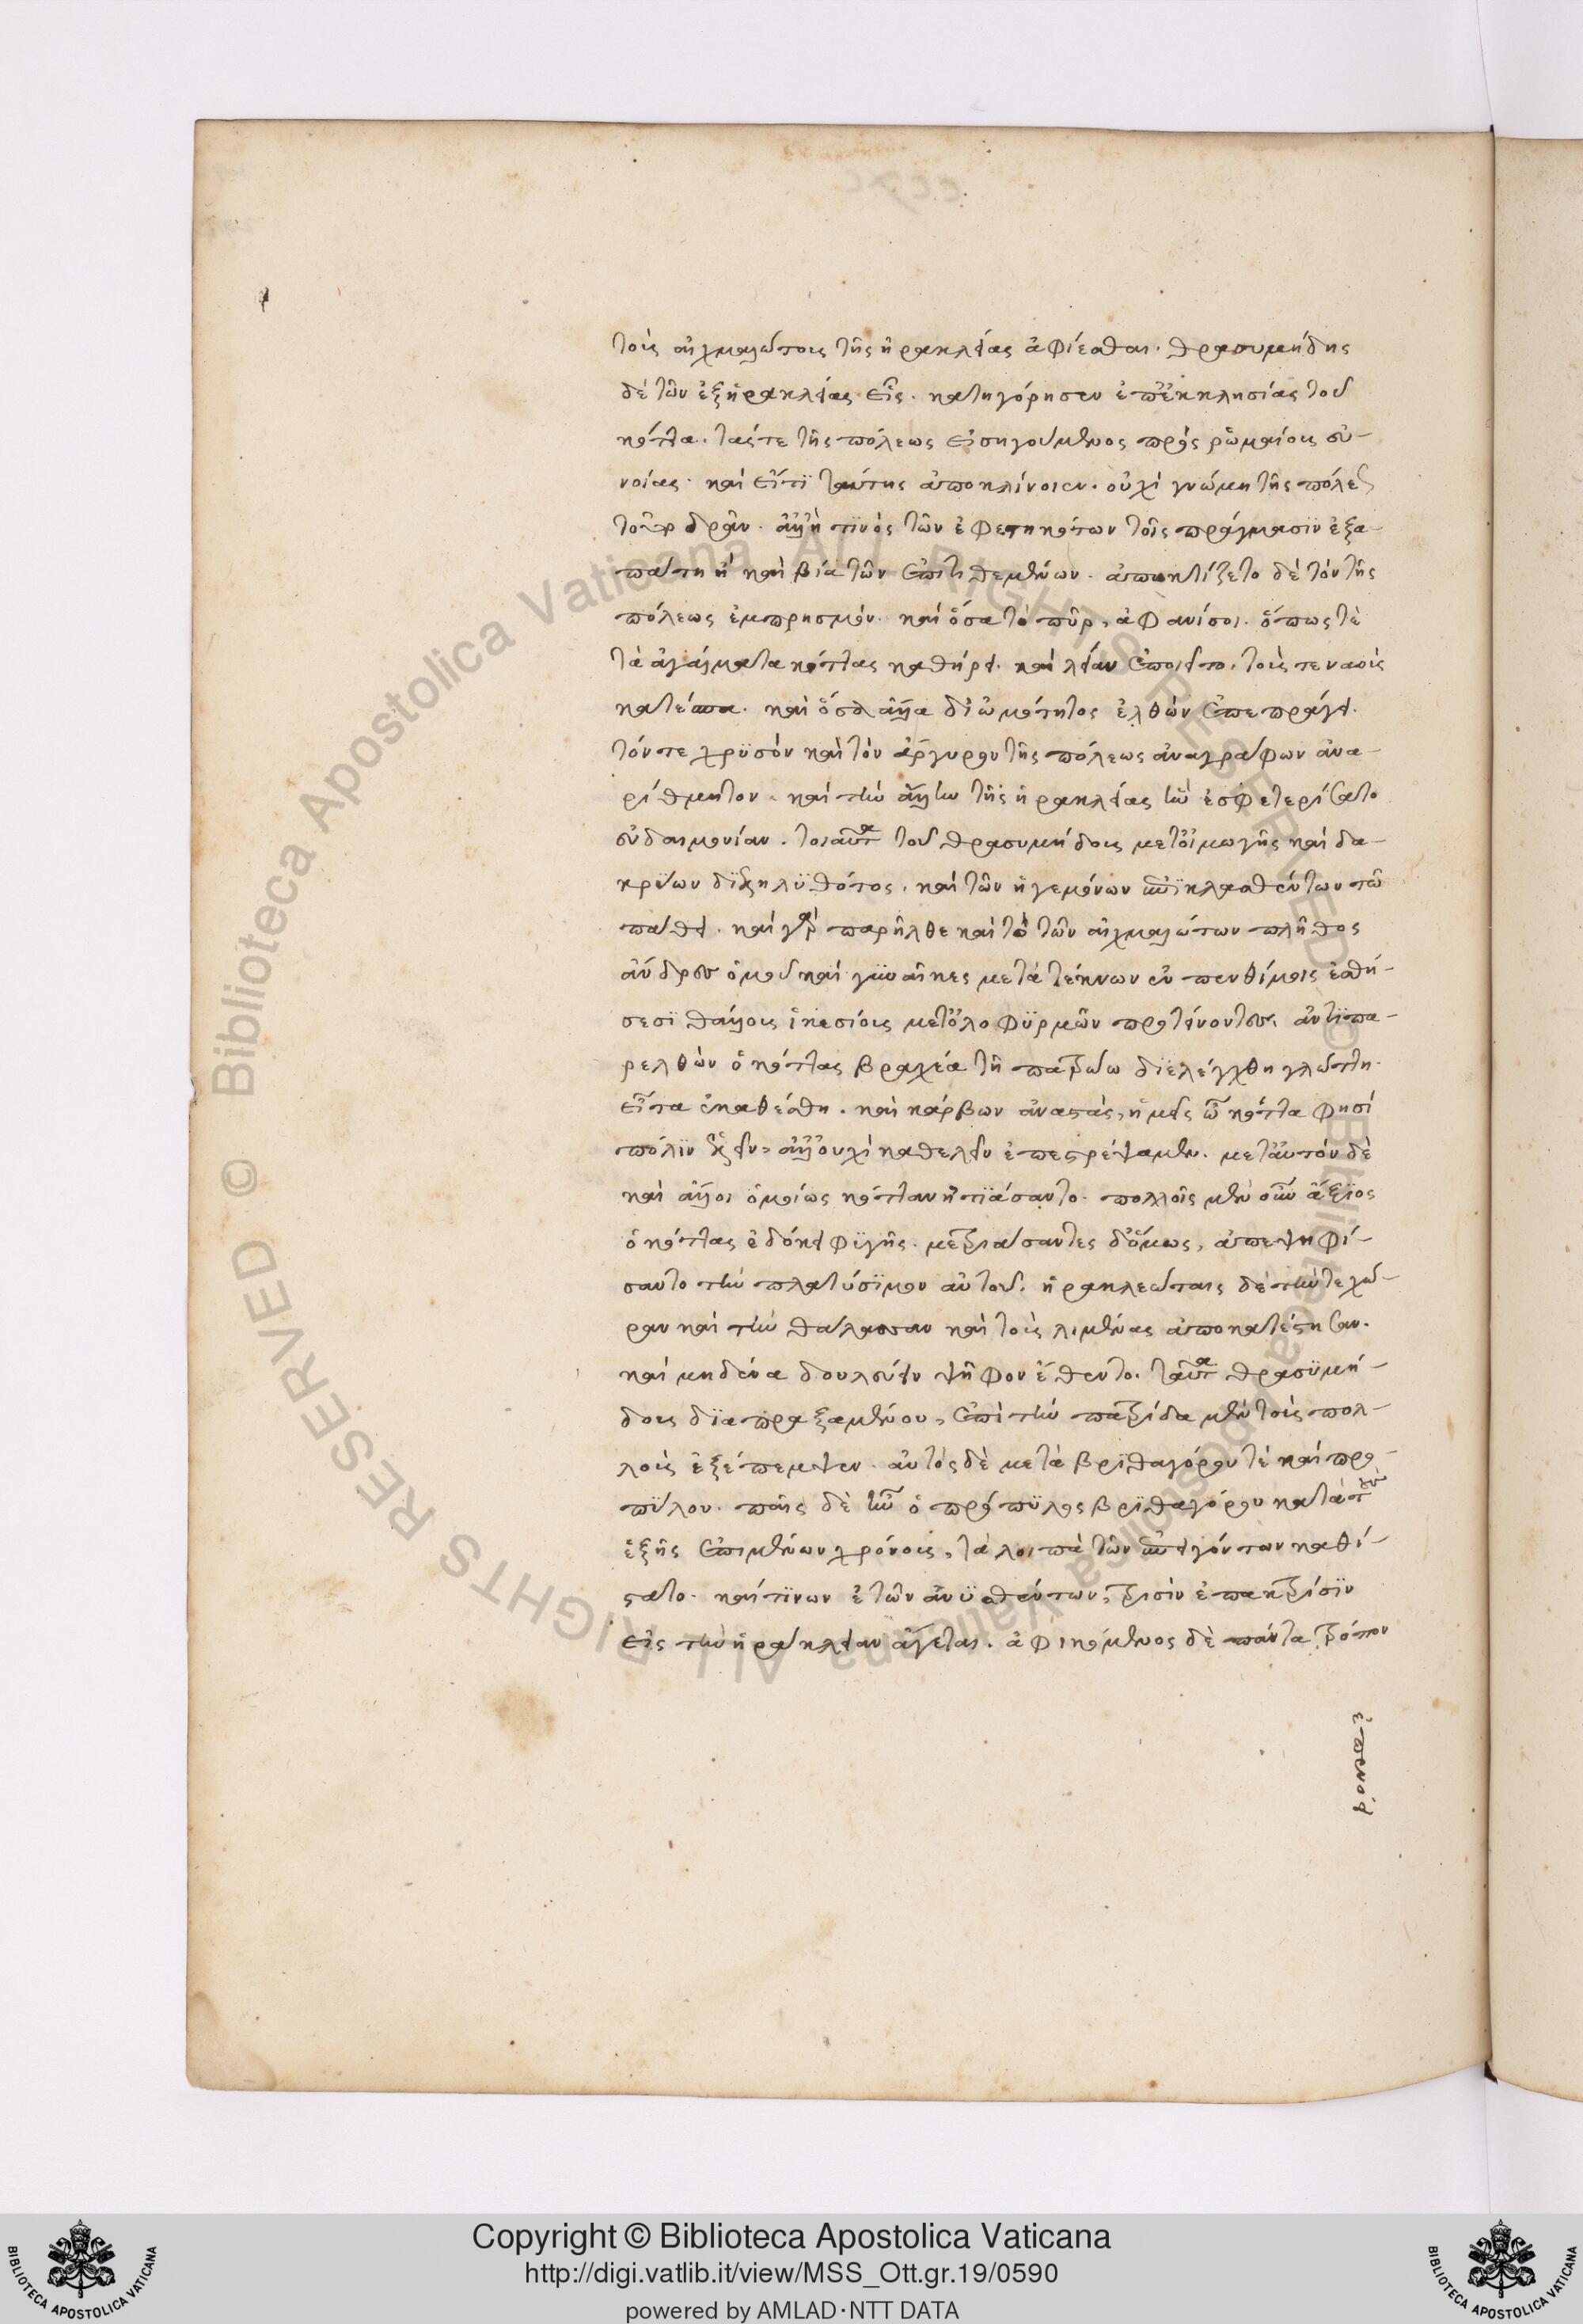 τοὺς αἰχμαλώτους τῆς ἡρακλείας ἀφίεσθαι. θρασυμήδης
δὲ τῶν ἐξ ἡρακλείας εἷς. κατηγόρησεν ἐπ' ἐκκλησίας τοῦ
κόττα. τάς τε τῆς πόλεως εἰσηγούμενος πρὸς ῥωμαίους εὐ-
νοίας. καὶ εἴ τι ταύτης ἀποκλίνοιεν. οὐχὶ γνώμη τῆς πόλεως
τοῦτο δρᾶν. ἀλλ' ἤ τινὸς τῶν ἐφεστηκότων τοῖς πράγμασιν ἐξα-
πάτη ἢ καὶ βία τῶν ἐπιτιθεμένων. ἀπωκτίζετο δὲ τόν τῆς
πόλεως ἐμπρησμόν. καὶ ὅσα τὸ πῦρ, ἀφανίσοι. ὅπως τὲ
τὰ ἀγάλματα κόττας καθήρει. καὶ λείαν ἐποιεῖτο. τούς τε ναοὺς
κατέσπα. καὶ ὅσα ἄλλα δι' ὠμότητος ἐλθὼν ἐπεπράγει.
τόν τε χρυσὸν καὶ τὸν ἄργυρον τῆς πόλεως ἀναγράφων ἀνα-
ρίθμητον. καὶ τὴν ἄλλην τῆς ἡρακλείας ἣν ἐσφετερίσατο
εὐδαιμονίαν. τοιαῦτα τοῦ θρασυμήδους μετ' οἰμωγῆς καὶ δα-
κρύων διεξηλυθότος. καὶ τῶν ἡγεμόνων ἐπικλασθέντων τῶ
πάθει. καὶ γὰρ παρῆλθε καὶ τὸ τῶν αἰχμαλώτων πλῆθος
ἄνδρες ὁμοῦ καὶ γυναῖκες μετὰ τέκνων ἐν πενθίμοις ἐσθή-
σεσι θάλλους ἱκεσίους μετ' ὀλοφυρμῶν προτείνοντες, ἀντιπα-
ρελθὼν ὁ κόττας βραχέα τῇ πατρίω διελέγχθη γλώττη.
εἶτα ἐκαθέσθη. καὶ κάρβων ἀναστάς, ἡμεῖς ὦ κόττα φησὶ
πόλιν ἑλεῖν, ἀλλ' οὐχὶ καθελεῖν ἐπετρέψαμεν. μετ' αὐτὸν δὲ
καὶ ἄλλοι ὁμοίως κότταν ἠτιάσαντο. πολλοῖς μὲν οὖν ἄξιος
ὁ κόττας ἐδόκει φυγῆς. μετριάσαντες δ' ὅμως, ἀπεψηφί-
σαντο τὴν πλατύσημον αὐτοῦ. ἡρακλεώταις δὲ τήν τε χώ-
ραν καὶ τὴν θάλασσαν καὶ τοὺς λιμένας ἀποκατέστησαν.
καὶ μηδένα δουλεύειν ψῆφον ἔθεντο. ταῦτα θρασυμή-
δους διαπραξαμένου, ἐπὶ τὴν πατρίδα μὲν τοὺς πολ-
λοὺς ἐξέπεμψεν. αὐτὸς δὲ μετὰ βριθαγόρου τὲ καὶ προ-
πύλου. παῖς δὲ ἦν ὁ πρόπυλος βριθαγόρου κατὰ τοὺς
ἑξῆς ἐπιμένων χρόνους, τὰ λοιπὰ τῶν ἐπειγόντων καθί-
στατο. καί τινων ἐτῶν ἀνυσθέντων, τρισὶν ἐπακτρίσιν
εἰς τὴν ἡράκλειαν ἄγεται. ἀφικόμενος δὲ πάντα τρόπον
ἐπενόει